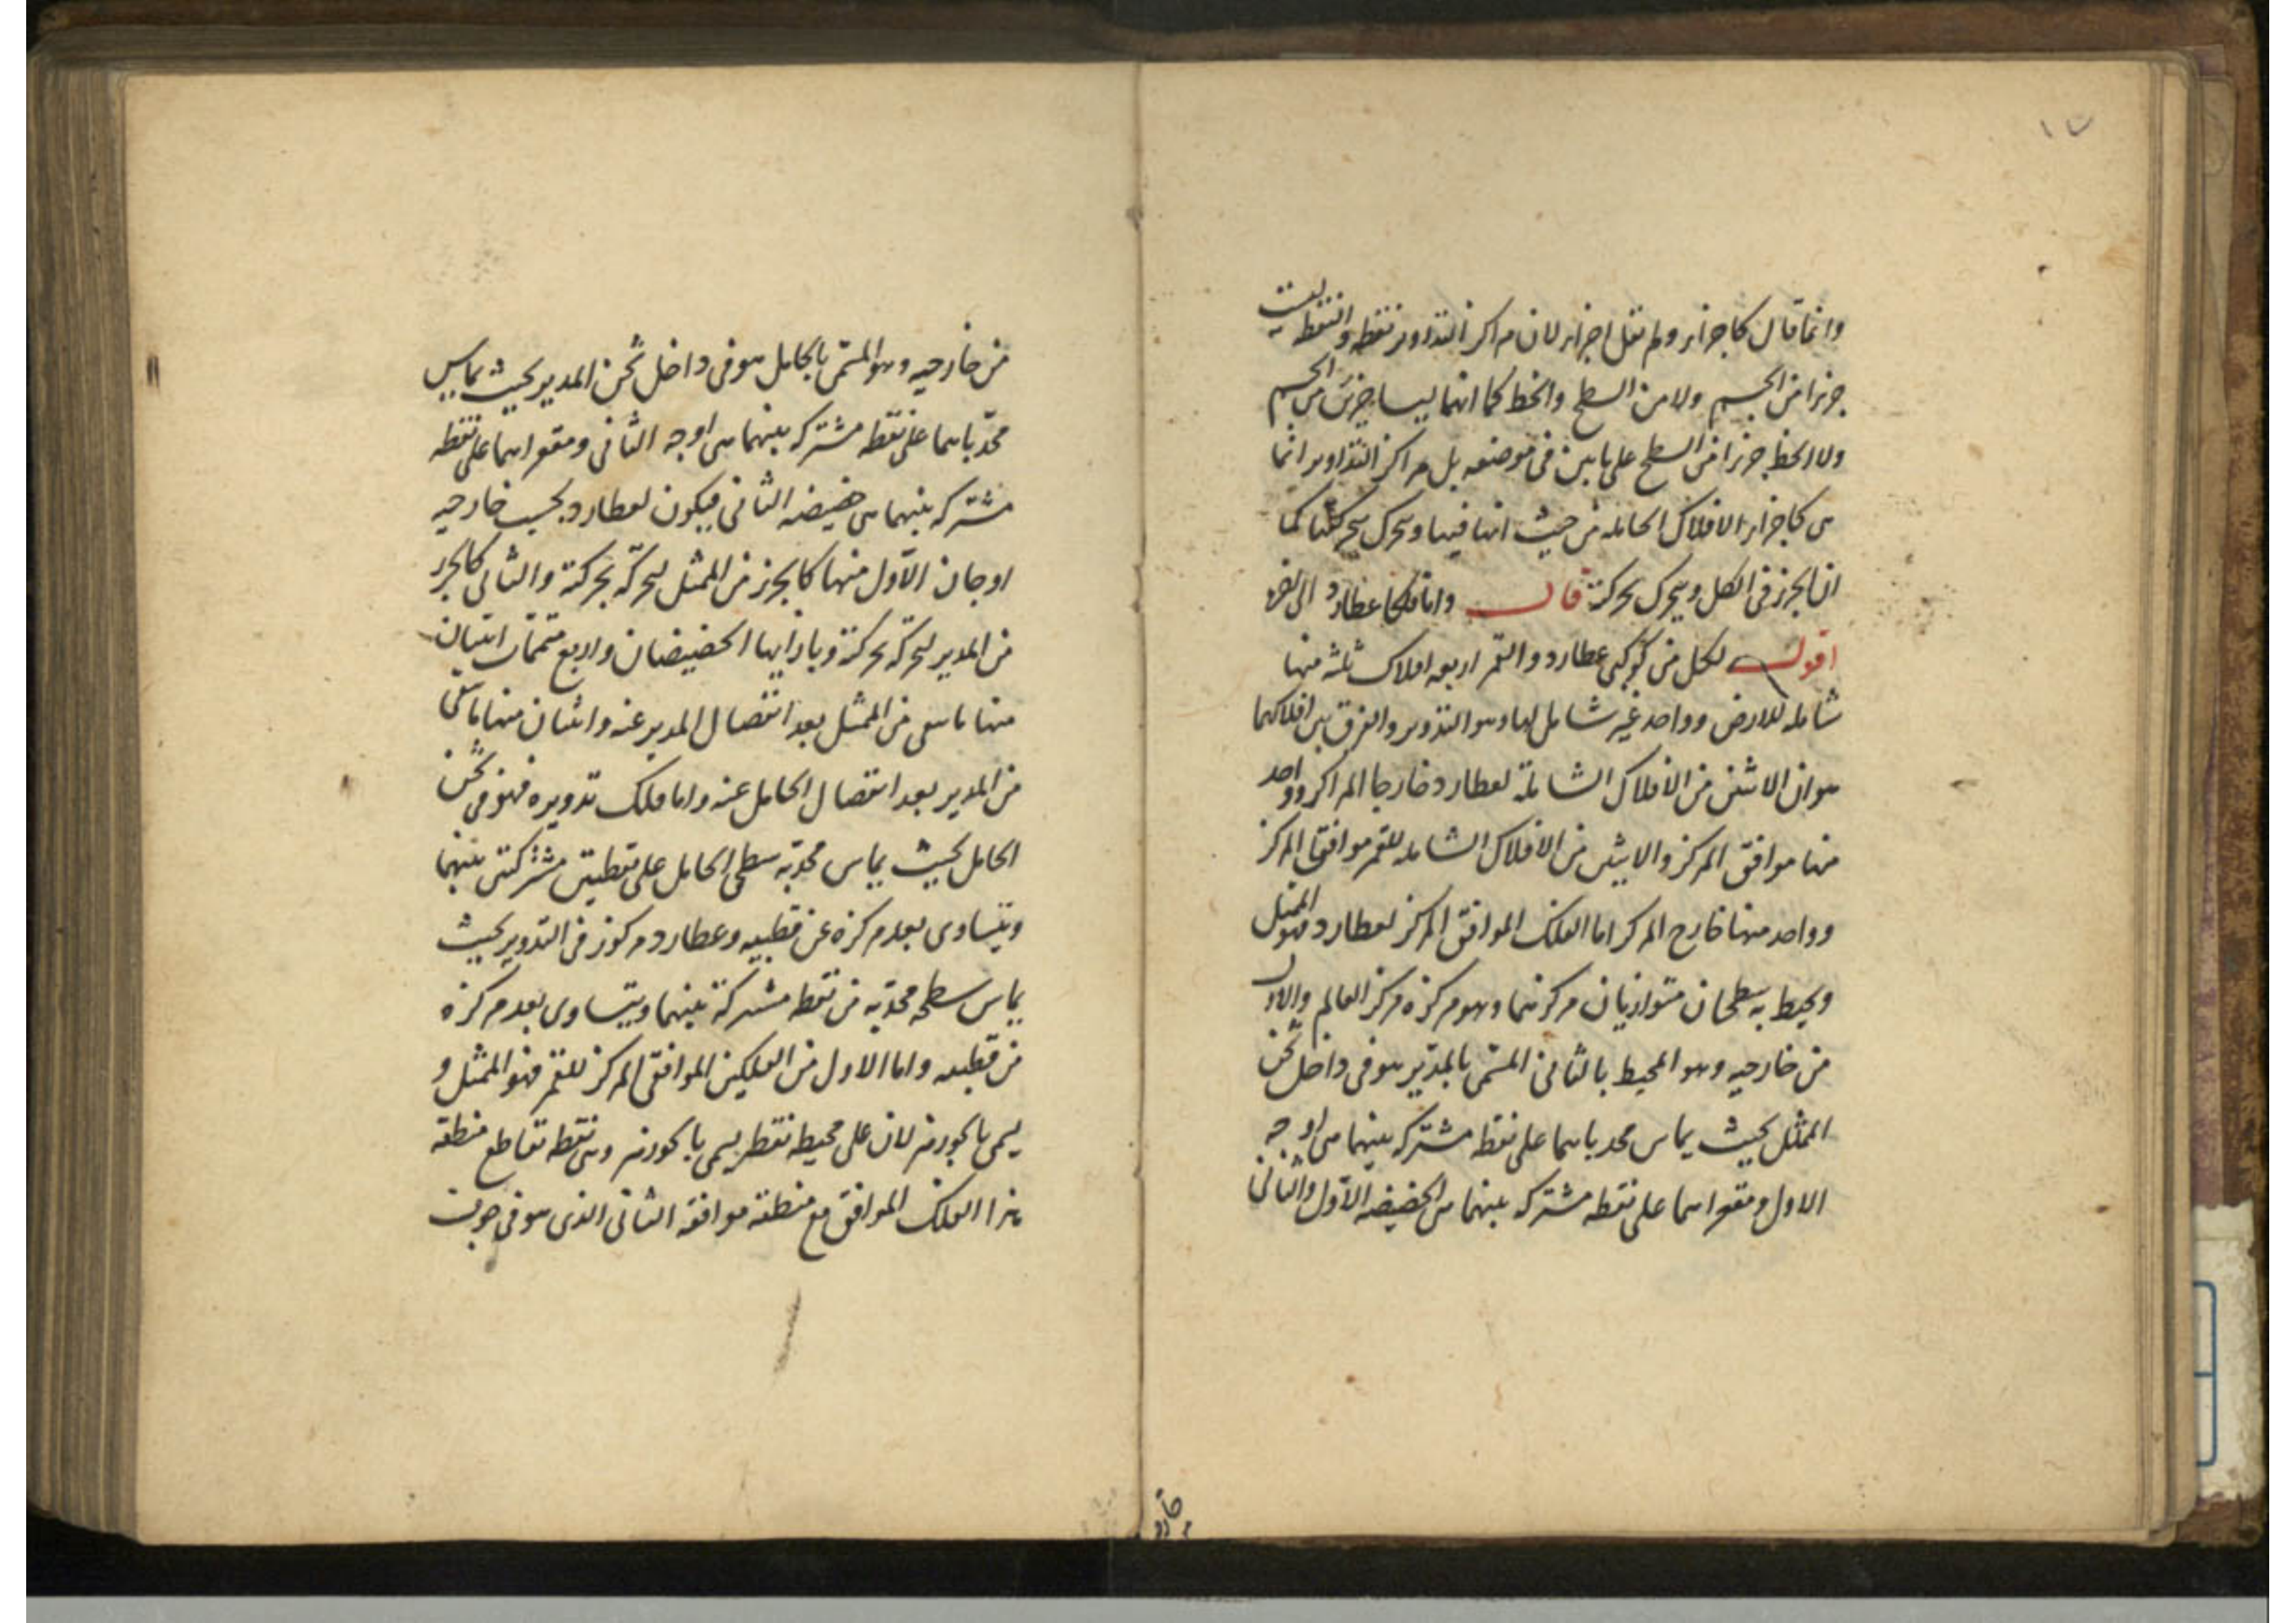 ١٧
وانما قال كاجزاء ولم يقل اجزاء لان مراكز التداوير نقطة والنقطة ليست
جزءا من الجسم ولا من السطح والخط كما انهما ليسا جزئين من الجسم
ولا الخط جزءا من السطح على ما بين فى موضعه بل مراكز التداوير انما
هى كاجزاء الافلاك الحاملة من حيث انها فيها وتتحرك بحركتها كما
ان الجزء فى الكل ويتحرك بحركته قال واما فلكا عطارد الى اخره
اقول لكل من كوكبى عطارد والقمر اربعة افلاك ثلثة منها
شاملة للارض وواحد غير شامل لها وهو التدوير والفرق بين افلاكهما
هو ان الاثنين من الافلاك الشاملة لعطارد خارجا المراكز وواحد
منها موافق المركز والاثنين من الافلاك الشاملة للقمر موافقا المركز
وواحد منها خارج المركز اما الفلك الموافق المركز لعطارد فهو الممثل
ويحيط به سطحان متوازيان مركزهما وهو مركزه مركز العالم والاول
من خارجيه وهو المحيط بالثانى المسمّى بالمدير هو فى داخل ثخن
الممثل بحيث يماس محدباهما على نقطة مشتركة بينهما هى اوجه
الاول ومقعراهما على نقطة مشتركة بينهما هى الحضيضه الاول والثانى
من خارجيه وهو المسمّى بالحامل هو فى داخل ثخن المدير بحيث يماس
محدّباهما على نقطة مشتركة بينهما هى اوجه الثانى ومقعراهما على نقطة
مشتركة بينهما هى حضيضه الثانى فيكون لعطارد بحسب خارجيه
اوجان الاول منها كالجزء من الممثل ليحركه بحركته والثانى كالجزء
من المدير ليحركه بحركته وبازايها الحضيضان واربع متممات اثنتان
منها ما بقى من الممثل بعد انفصال المدير عنه واثنان منها ما بقى
من المدير بعد انفصال الحامل عنه واما فلك تدويره فهو فى ثخن
الحامل بحيث يماس محدبه سطحى الحامل على نقطتين مشتركتين بينهما
ويتساوى بعد مركزه عن قطبيه وعطارد مركوز فى التدوير بحيث
يماس سطحه محدّبه من نقطة مشتركة بينهما ويتساوى بعد مركزه
من قطبيه واما الاول من الفلكين الموافقى المركز للقمر فهو الممثل و
يسمى بالجوزهر لان على محيطه نقطة يسمى بالجوزهر وهى نقطة تقاطع منطقة
هذا الفلك الموافق مع منطقة موافقه الثانى الذى هو فى جوف